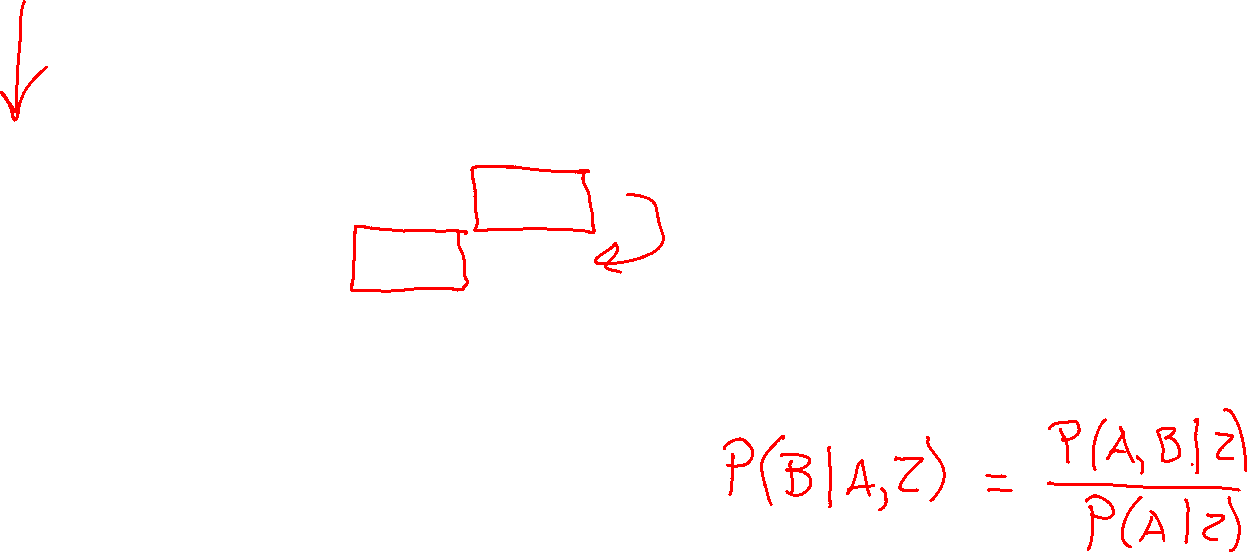 P(B|A,Z) = P(A,B|Z) / P(A|Z)